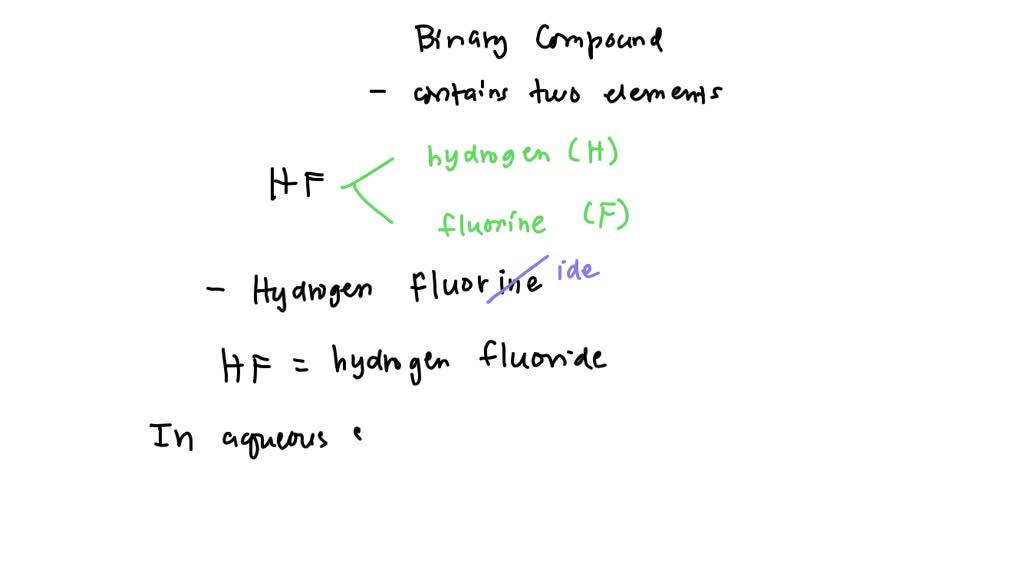 Binary Compound
- contains two elements
hydrogen (H)
HF
fluorine (F)
- Hydrogen fluorine ide
HF = hydrogen fluoride
In aqueous